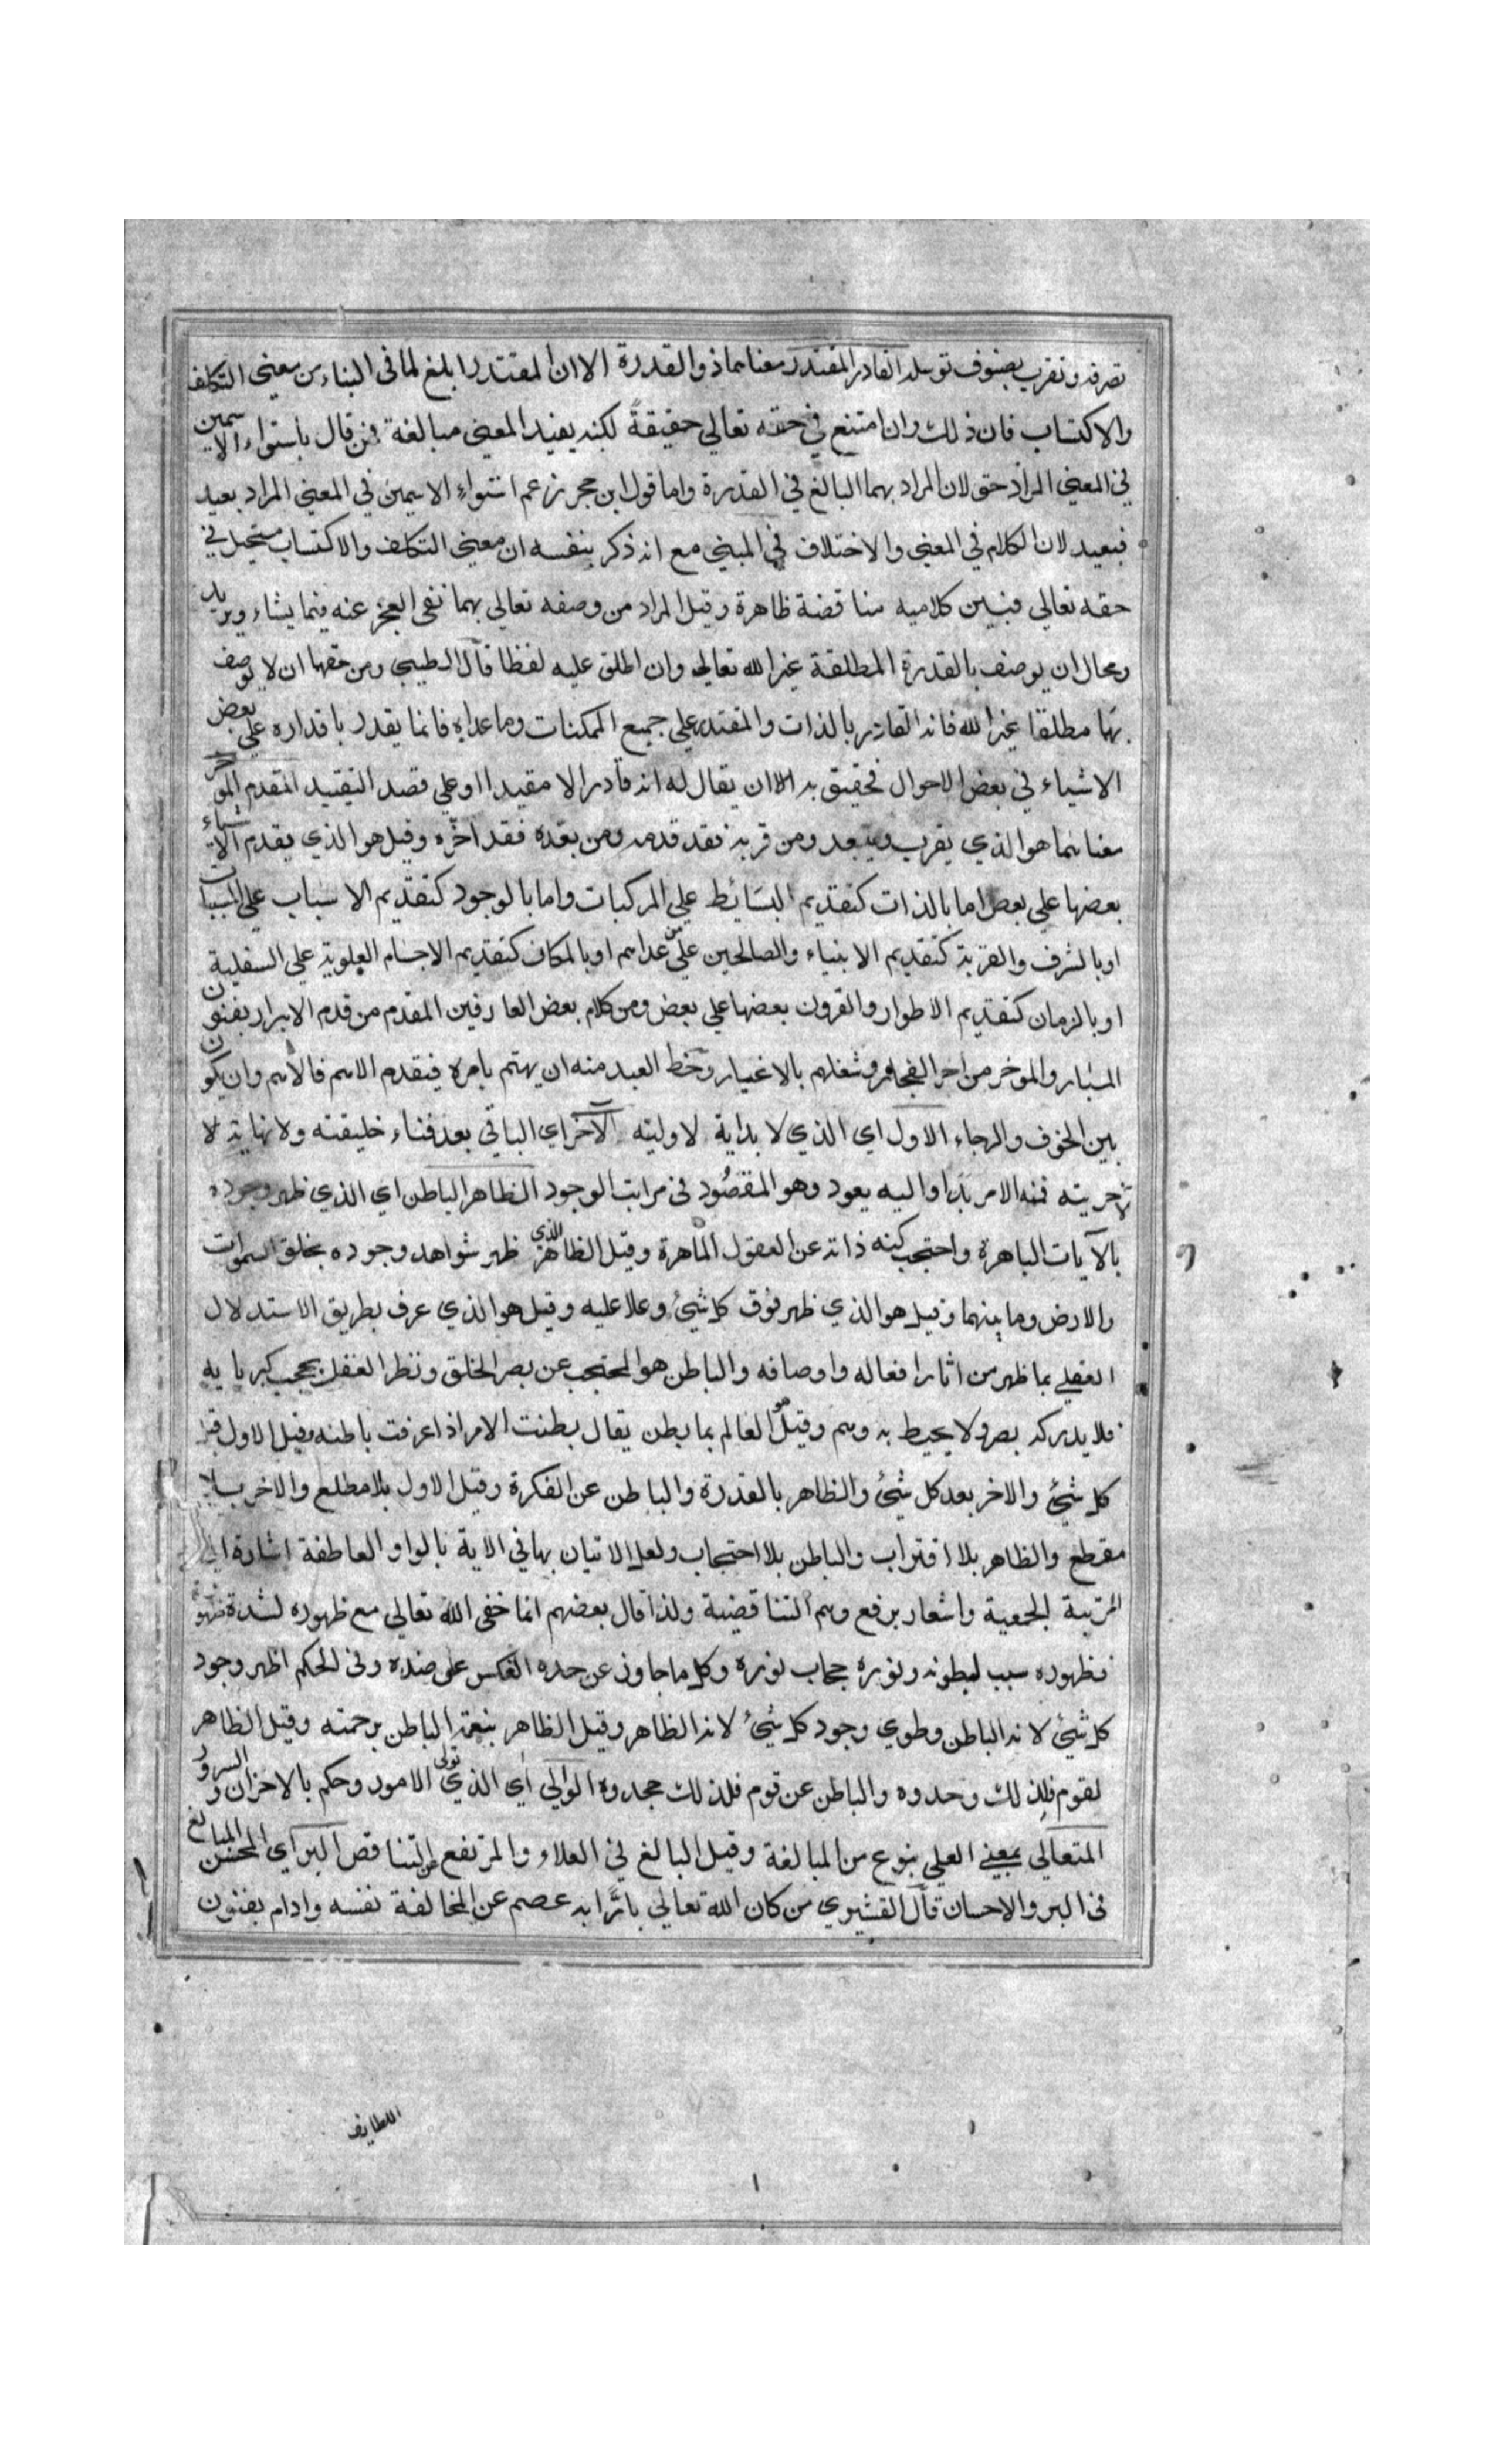 تصرفه وتقرب بصنوف توسله القادر المقتدر معناهما ذو القدرة الا ان المقتدر ابلغ لما في البناء من معنى التكلف
والاكتساب فان ذلك وان امتنع في حقه تعالي حقيقةً لكنه يفيد المعنى مبالغة فمن قال باستواء الاسمين
في المعنى المراد حق لان المراد بهما البالغ في القدرة واما قول ابن حجر زعم استواء الاسمين في المعنى المراد بعيد
فبعيد لان الكلام في المعنى والاختلاف في المبنى مع انه ذكر بنفسه ان معنى التكلف والاكتساب مستحيل في
حقه تعالى فبين كلاميه مناقضة ظاهرة وقيل المراد من وصفه تعالى بهما نفى العجز عنه فيما يشاء ويريد
ومحال ان يوصف بالقدرة المطلقة غير الله تعالى وان اطلق عليه لفظا قال الطيبي ومن حقها ان لا يوصف
بها مطلقا غير الله فانه القادر بالذات والمقتدر على جميع الممكنات وما عداه فانما يقدر باقداره على بعض
الاشياء في بعض الاحوال فحقيق به ان لا يقال له انه قادر الا مقيدا او على قصد التقييد المقدم المؤخر
معناهما هو الذي يقرب ويبعد ومن قربه فقد قدمه ومن بعده فقد اخره وقيل هو الذي يقدم الاشياء
بعضها على بعض اما بالذات كتقديم البسائط علي المركبات واما بالوجود كتقديم الاسباب على المسببات
او بالشرف والقربة كتقديم الانبياء والصالحين على من عداهم او بالمكان كتقديم الاجسام العلوية على السفلية
او بالزمان كتقديم الاطوار والقرون بعضها على بعض ومن كلام بعض العارفين المقدم من قدم الابرار بفنون
المبار والموخر من اخر الفجار وشغلهم بالاغيار وحظ العبد منه ان يهتم بامره فيقدم الاهم فالاهم وان يكون
بين الخوف والرجاء الاول اي الذي لا بداية لاوليته الآخر اي الباقي بعد فناء خليقته ولا نهاية لا
لآخريته فمنه الامر بدا واليه يعود وهو المقصُود في مراتب الوجود الظاهر الباطن اي الذي ظهر وجوده
بالآيات الباهرة واحتجب كنه ذاته عن العقول الماهرة وقيل الظاهر الذي ظهر شواهد وجوده بخلق السموات
والارض وما بينهما وقيل هو الذي ظهر فوق كل شيء وعلا عليه وقيل هو الذي عرف بطريق الاستدلال
العقلي بما ظهر من اثار افعاله واوصافه والباطن هو المحتجب عن بصر الخلق ونظر العقل بحجب كبريايه
فلا يدركه بصر ولا يحيط به وهم وقيل هو العالم بما بطن يقال بطنت الامر اذا عرفت باطنه وقيل الاول قبل
كل شيء والاخر بعد كل شيء والظاهر بالقدرة والباطن عن الفكرة وقيل الاول بلا مطلع والاخر بلا
مقطع والظاهر بلا اقتراب والباطن بلا احتجاب ولعل الاتيان بها في الاية بالواو العاطفة اشارة الى
المرتبة الجمعية واشعار برفع وهم التناقضية ولذا قال بعضهم انما خفى الله تعالى مع ظهوره لشدة ظهوره
فظهوره سبب لبطونه ونوره حجاب نوره وكل ما جاوز عن حده انعكس على ضده وفي الحكم اظهر وجود
كل شيء لانه الباطن وطوي وجود كل شيء لانه الظاهر وقيل الظاهر بنعمته الباطن برحمته وقيل الظاهر
لقوم فلذلك وحدوه والباطن عن قوم فلذلك جحدوه الوالي اي الذي تولى الامور وحكم بالاحزان والسرور
المتعالي بمعنى العلي بنوع من المبالغة وقيل البالغ في العلاء والمرتفع عن التناقص البر اي المحسن المبالغ
في البر والاحسان قال القشيري من كان الله تعالى بارًّا به عصم عن المخالفة نفسه وادام بفنون
اللطايف